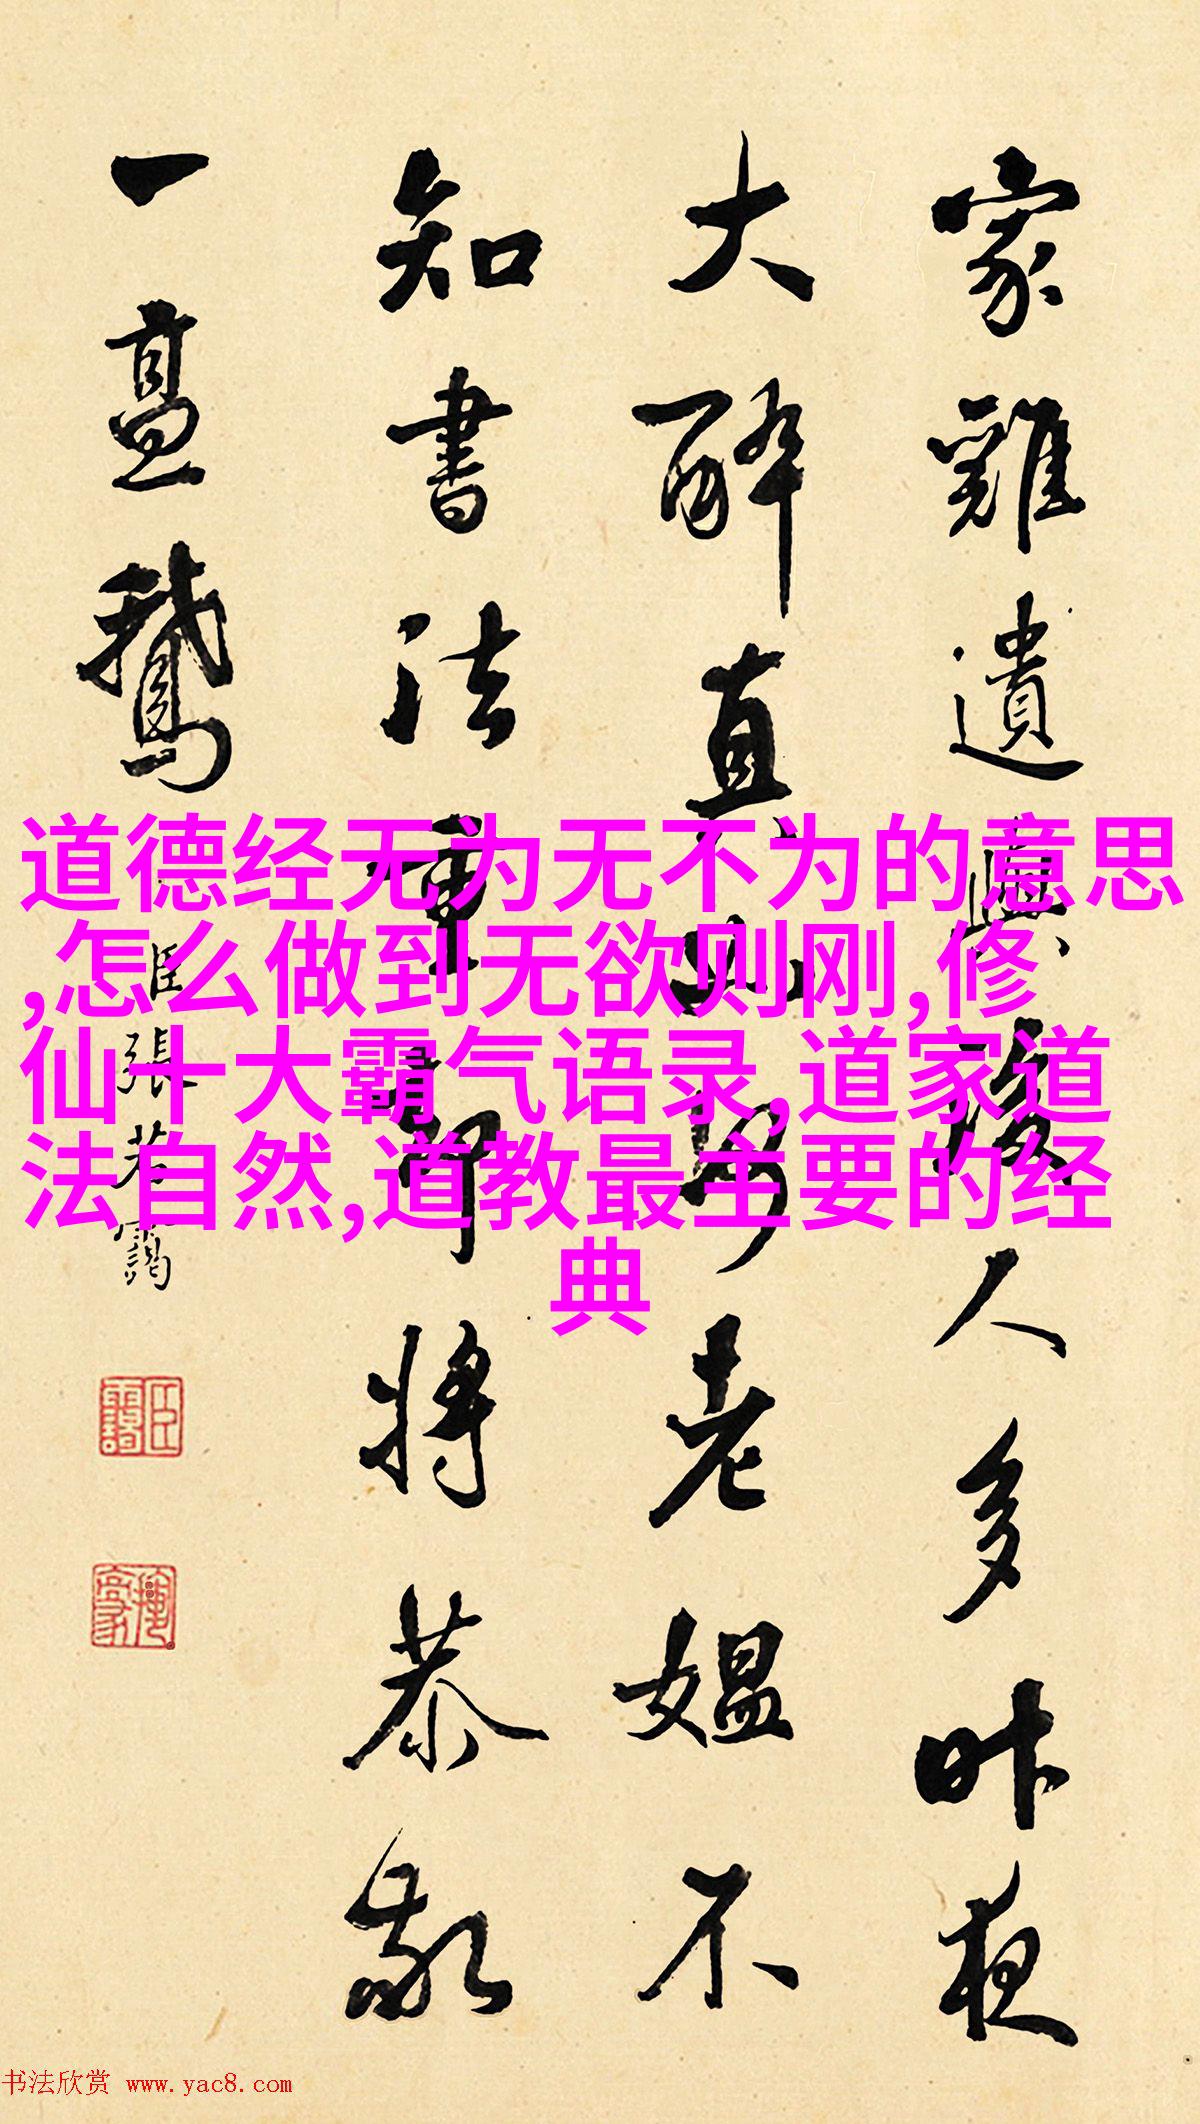 家雞遺與後人多昨夜
大醉直
老媼不
知書法重
將恭敬
一籃鵝
臣張若靄
道德经无为无不为的意思
,怎么做到无欲则刚,修
仙十大霸气语录,道家道
法自然,道教最主要的经
典
书法欣赏 www.yac8.com